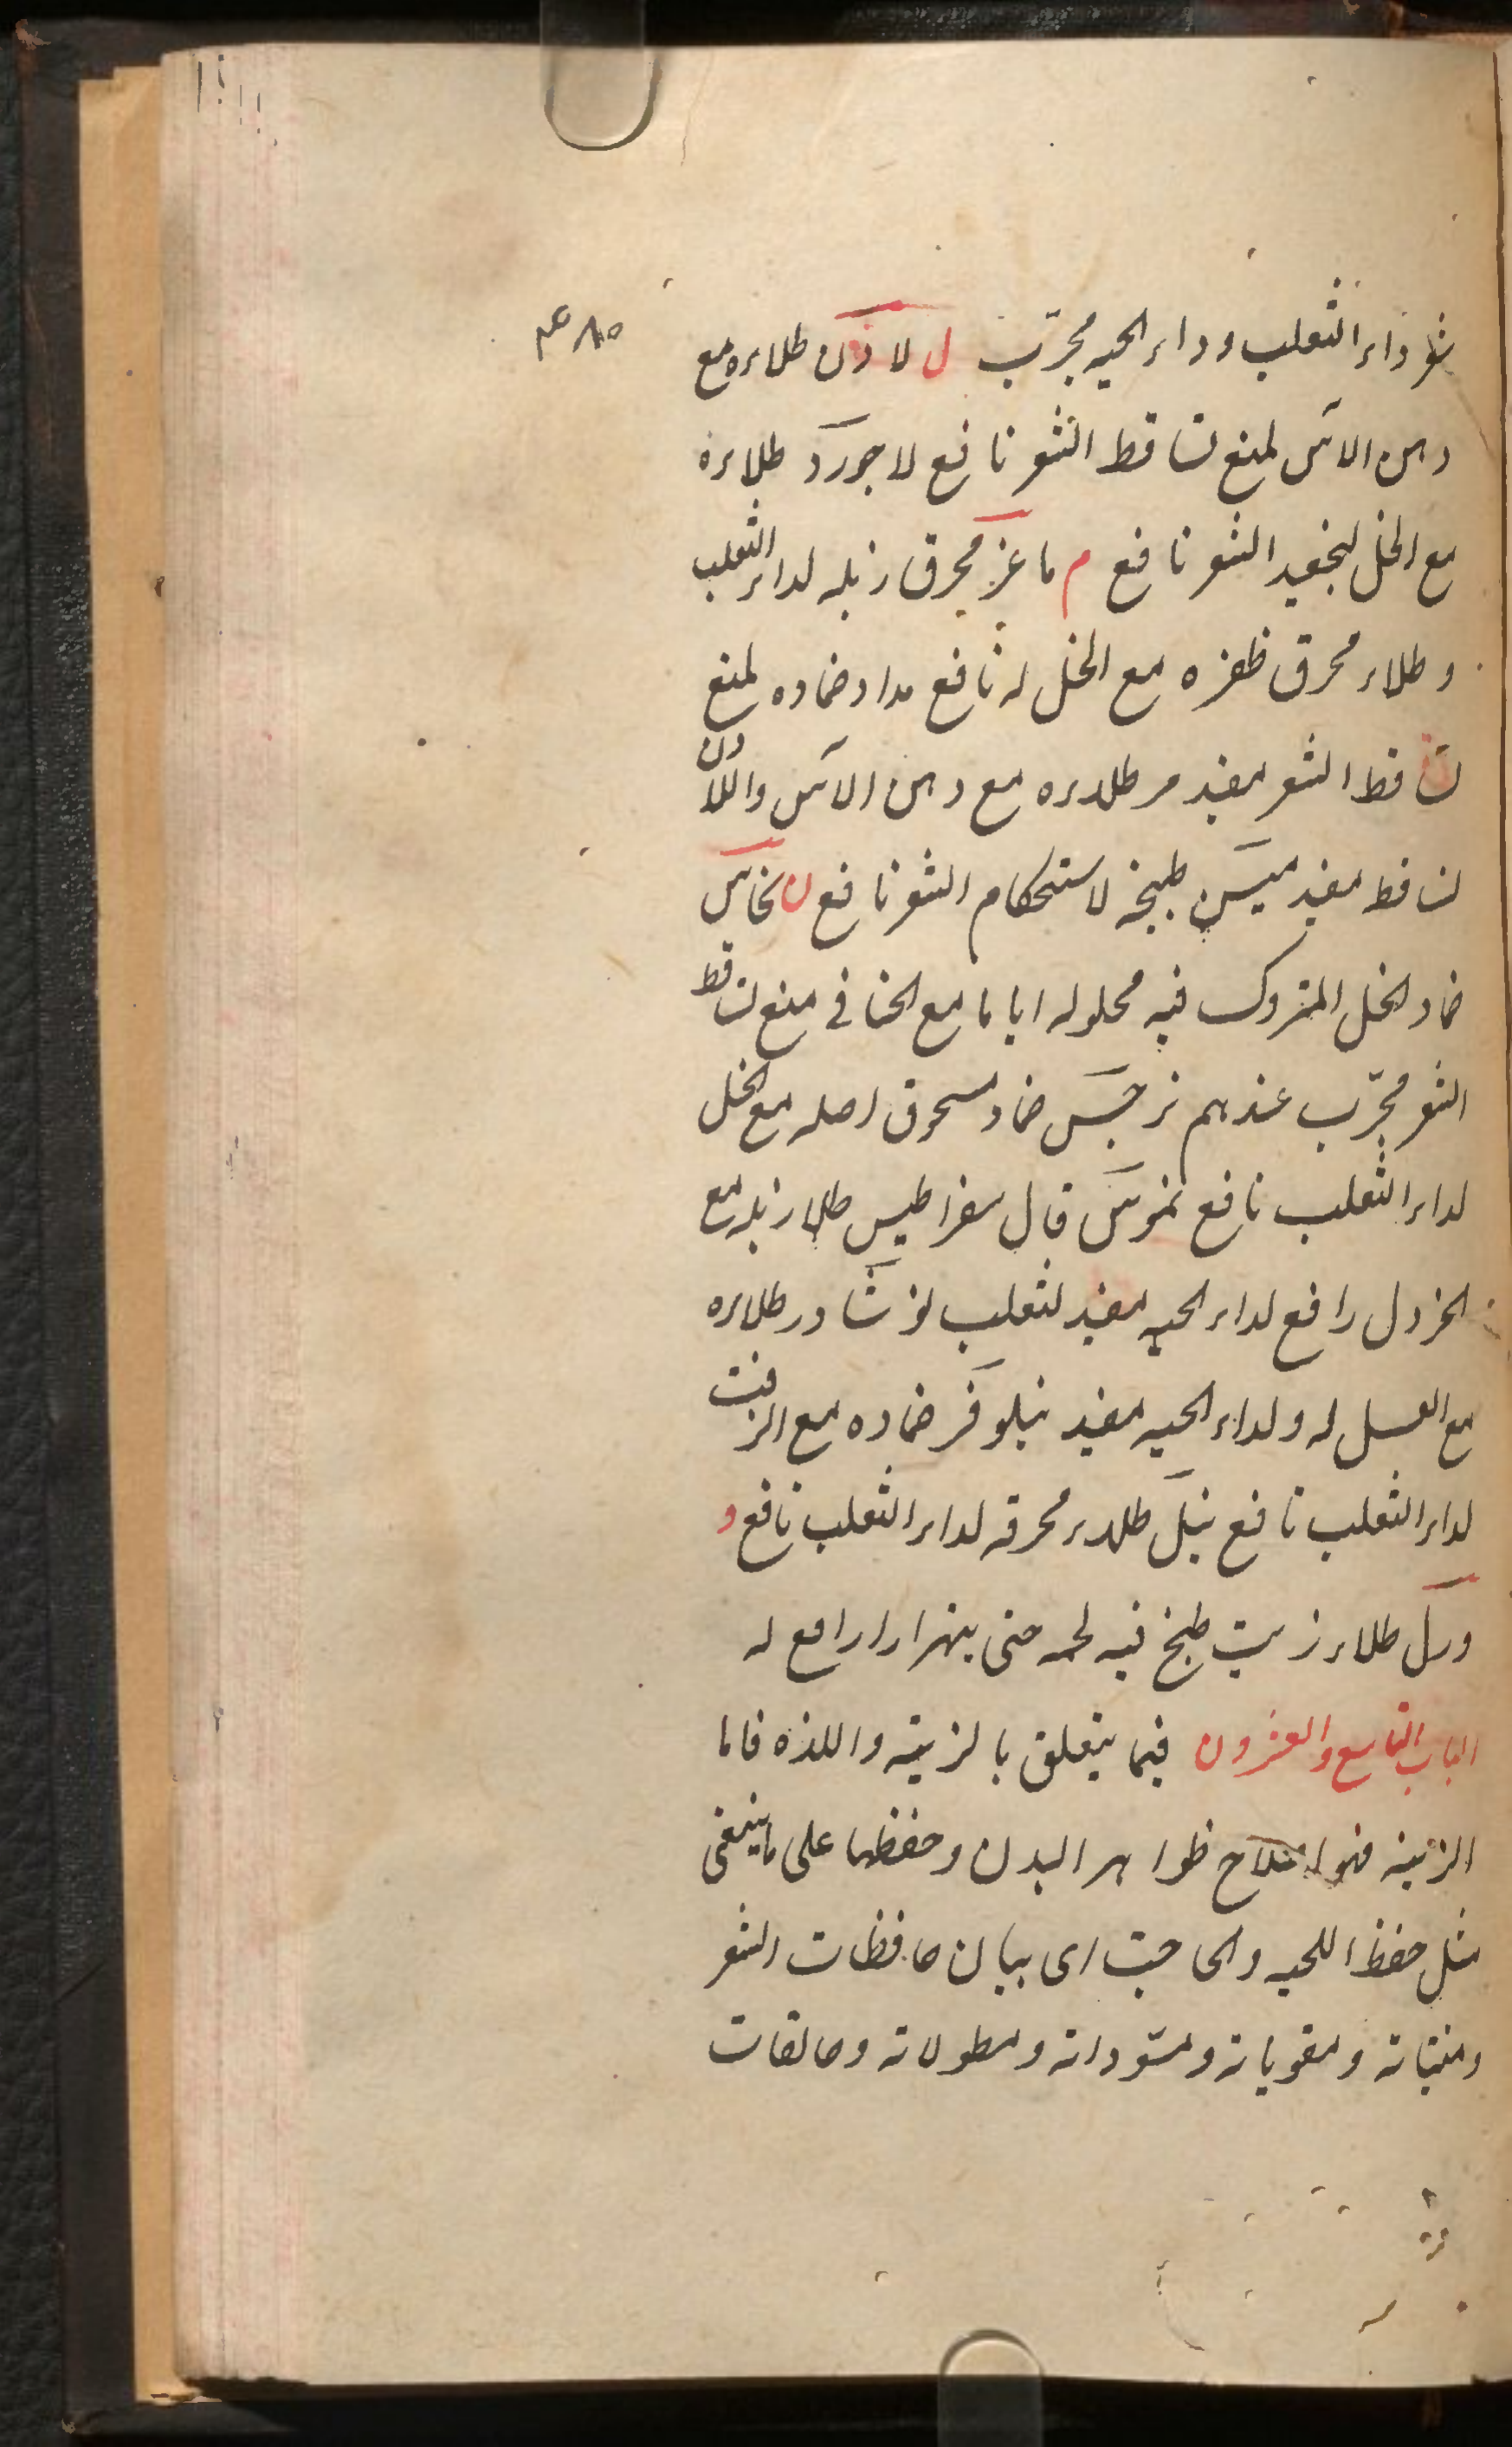 ٤٨٥
شعر داء الثعلب وداء الحيه مجرّب ل لادن طلاءه مع
دهن الاس لمنع تساقط الشعر نافع لاجورد طلاءه
مع الخل لتجعيد الشعر نافع م ماعز محرق زبله لداء الثعلب
وطلاء محرق ظفره مع الخل له نافع مداد ضماده لمنع
تساقط الشعر مفيد مر طلاءه مع دهن الاس واللادن
لتساقط مفيد ميس طبيخه لاستحكام الشعر نافع ن نحاس
ضماد الخل المتروك فيه محلوله اياما مع الحنا فى منع تساقط
الشعر مجرّب عندهم نرجس ضماد مسحوق اصله مع الخل
لداء الثعلب نافع نموس قال سقراطيس طلاء زبله مع
الخردل رافع لداء الحيه مفيد لثعلب نوشادر طلاءه
مع العسل له ولداء الحيه مفيد نيلوفر ضماده مع الزفت
لداء الثعلب نافع نيل طلاء محرقه لداء الثعلب نافع و
ورل طلاء زيت طبخ فيه لحمه حتى ينهرا رافع له
الباب التاسع والعشرون فيما يتعلق بالزينة واللذه فاما
الزينه فهو اصلاح ظواهر البدن وحفظها على ما ينبغى
مثل حفظ اللحيه والحاجب اى بيان حافظات الشعر
ومنبتاته ومقوياته ومسوداته ومطولاته وحالقات